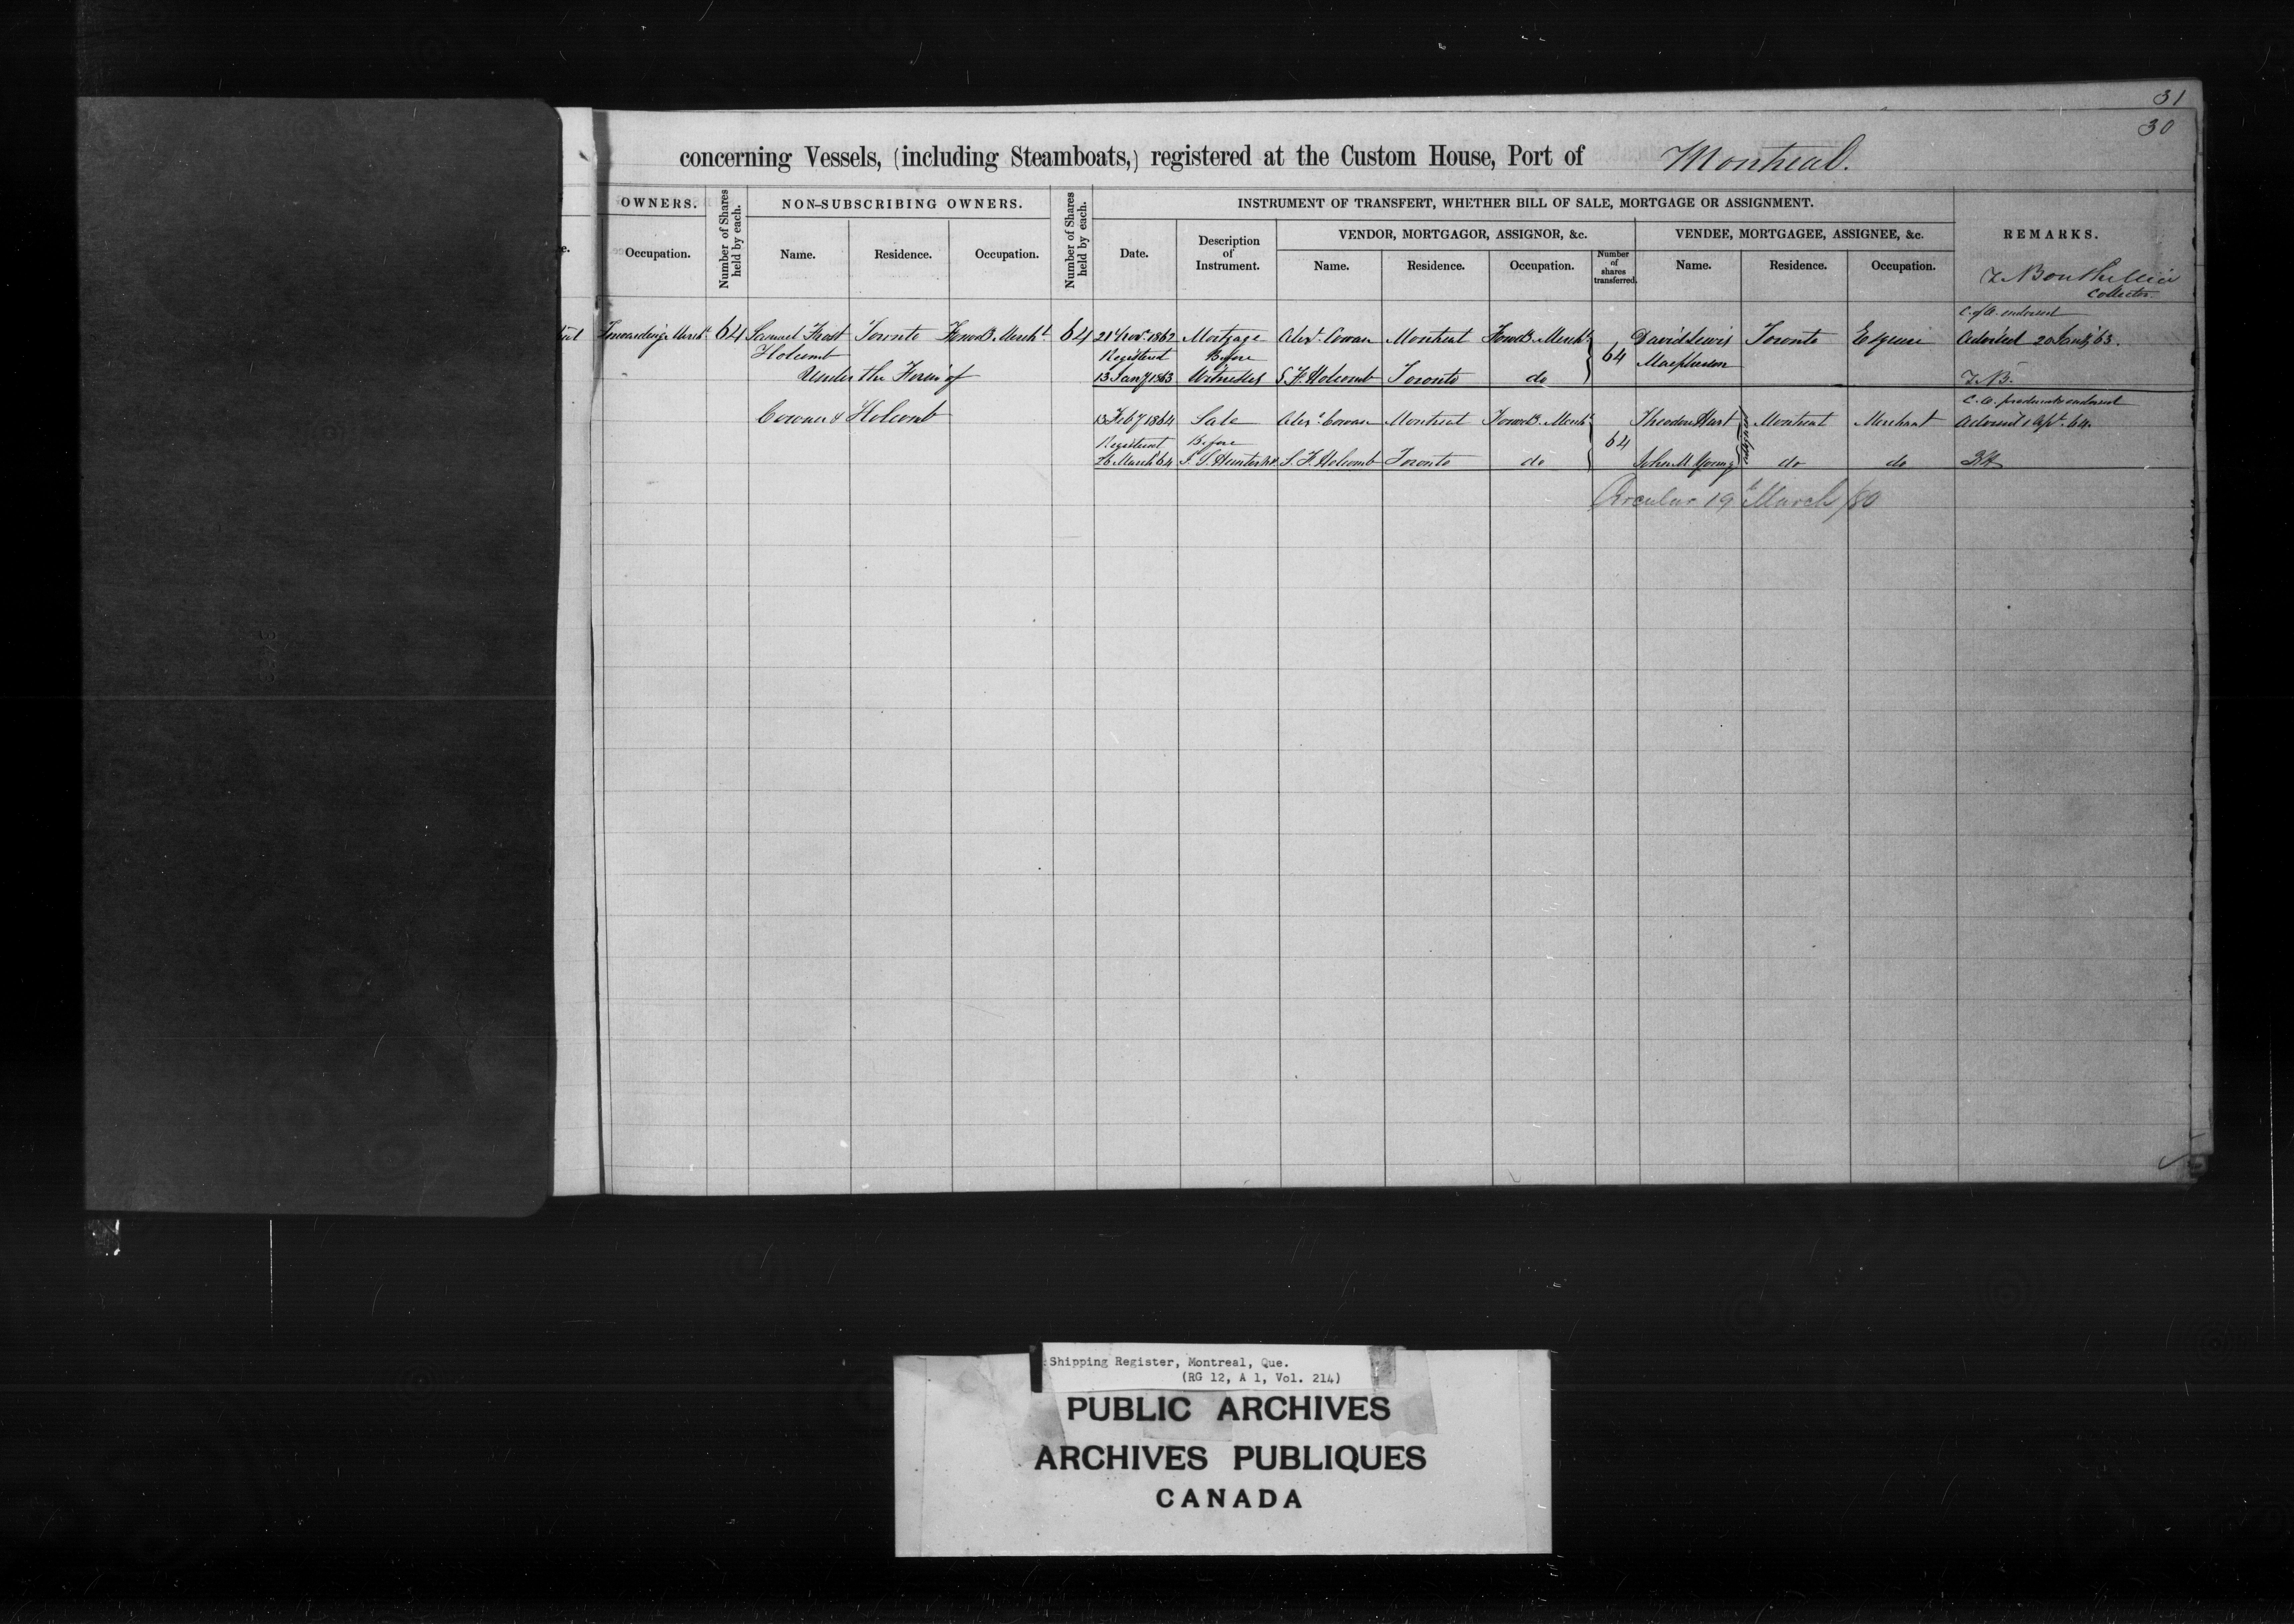 31
30
concerning Vessels, (including Steamboats,) registered at the Custom House, Port of Montreal.
OWNERS.
Number of Shares held by each.
NON-SUBSCRIBING OWNERS.
Number of Shares held by each.
INSTRUMENT OF TRANSFERT, WHETHER BILL OF SALE, MORTGAGE OR ASSIGNMENT.
e.
Occupation.
Name.
Residence.
Occupation.
Date.
Description of Instrument.
VENDOR, MORTGAGOR, ASSIGNOR, &c.
Number of shares transferred.
VENDEE, MORTGAGEE, ASSIGNEE, &c.
REMARKS.
Name.
Residence.
Occupation.
Name.
Residence.
Occupation.
T. Bouthillier
Collector.
C. of O. endorsed
Forwarding Mercht 64 Samuel Frost Toronto Forwd. Mercht 64 21 Novr 1862 Mortgage Alexr. Cowan Montreal Forwd. Mercht David Lewis Toronto Esquire Advised 20 Jany 63.
Holcomb Registered Before 64 Macpherson
Under the Firm of 13 Jany 1863 Witnesses S. F. Holcomb Toronto do T.B.
C. O. produced & endorsed
Cowan & Holcomb 13 Feby 1864 Sale Alexr. Cowan Montreal Forwd. Mercht Theodore Hart Montreal Merchant Advised 1 Apl. 64.
Registered Before 64
26 March 64 J. S. Hunter N.P. S. F. Holcomb Toronto do John M. Young do do
Circular 19 March /80
Shipping Register, Montreal, Que.
(RG 12, A 1, Vol. 214)
PUBLIC ARCHIVES
ARCHIVES PUBLIQUES
CANADA